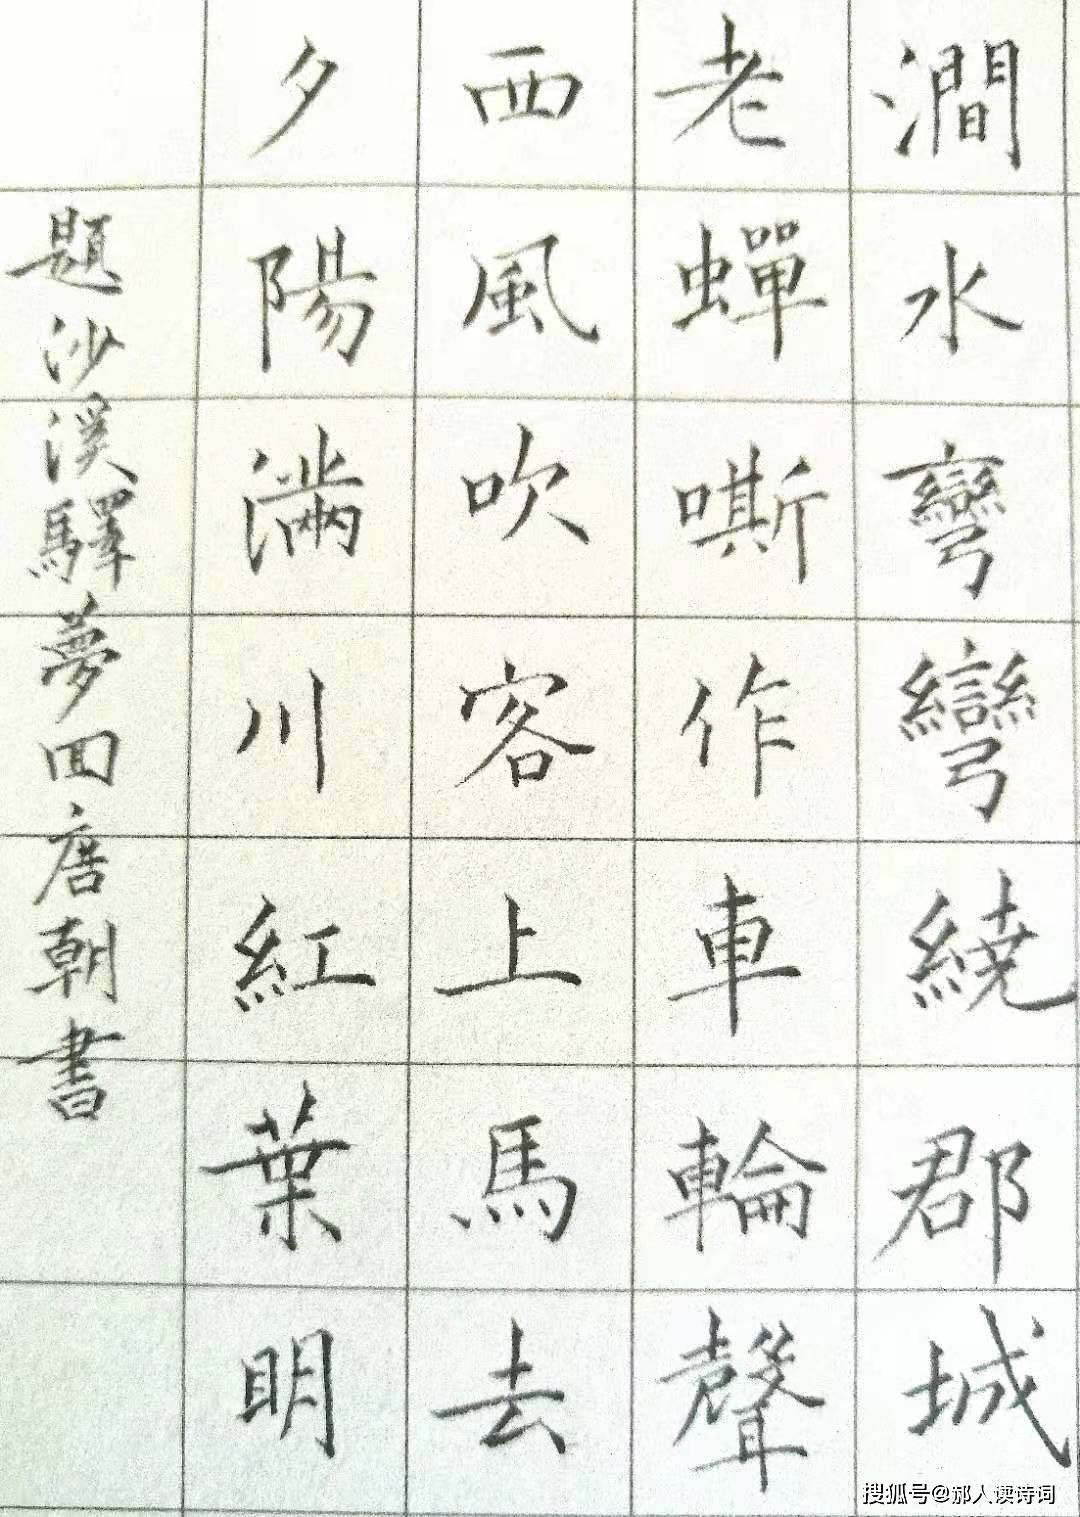 澗水彎彎繞郡城
老蟬嘶作車輪聲
西風吹客上馬去
夕陽滿川紅葉明
題沙溪驛夢回唐朝書
搜狐号@郝人读诗词